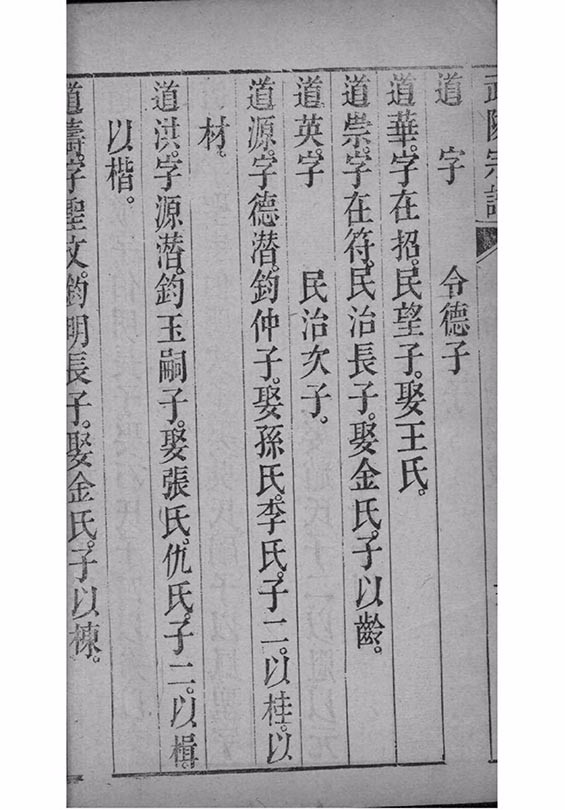 武陵宗譜
道　字　　令德子
道華。字在招。民望子。娶王氏。
道崇。字在符。民治長子。娶金氏。子以齡。
道英。字　　民治次子。
道源。字德潛。鈞仲子。娶孫氏。李氏。子二。以桂。以
材。
道洪。字源潛。鈞玉嗣子。娶張氏。仇氏。子二。以楫。
以楷。
道濤。字聖文。鈞明長子。娶金氏。子以棟。